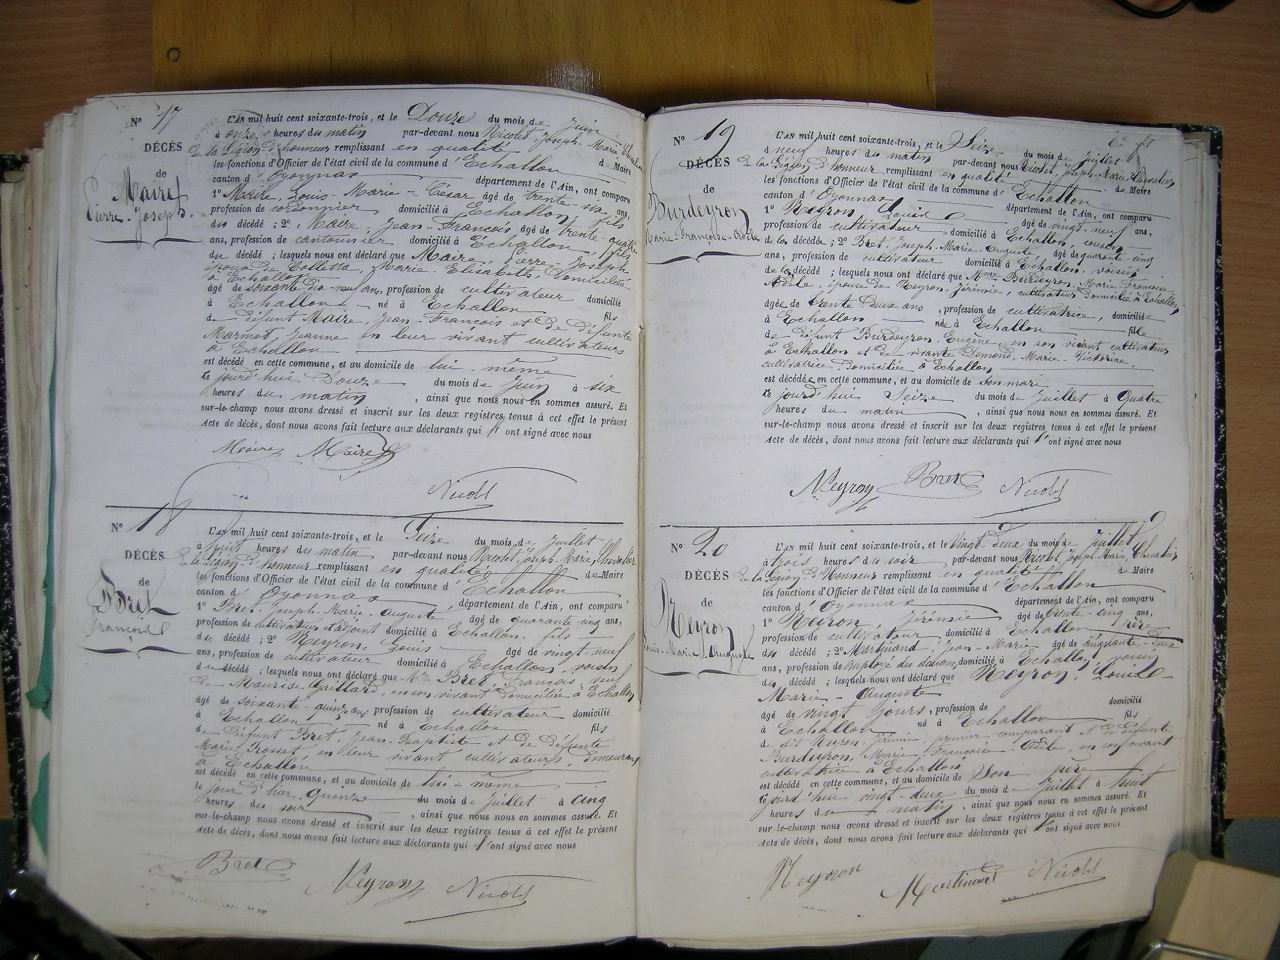 N° 17
DÉCÈS
de
Maire
Pierre-Joseph
L'AN mil huit cent soixante-trois, et le Douze du mois de Juin
à onze heures du matin par-devant nous Nicolet Joseph-Marie Chevalier
de la Légion d'honneur remplissant en qualité de Maire
les fonctions d'Officier de l'état civil de la commune d'Echallon
canton d'Oyonnax département de l'Ain, ont comparu
1° Maire, Louis-Marie-César âgé de trente six ans,
profession de cordonnier domicilié à Echallon, fils
du décédé ; 2° Maire, Jean-François, âgé de trente quatre
ans, profession de cantonnier domicilié à Echallon, fils
du décédé ; lesquels nous ont déclaré que Maire, Pierre-Joseph
époux de Colletta, Marie Elisabeth, Domicilié
à Echallon
âgé de soixante dix neuf ans, profession de cultivateur domicilié
à Echallon né à Echallon fils
de défunt Maire, Jean-François et de défunte
Marmot, Jeanne en leur vivant cultivateurs
à Echallon
est décédé en cette commune, et au domicile de lui-même
le jourd'hui Douze du mois de Juin à six
heures du matin, ainsi que nous nous en sommes assuré. Et
sur-le-champ nous avons dressé et inscrit sur les deux registres tenus à cet effet le présent
acte de décès, dont nous avons fait lecture aux déclarants qui l'ont signé avec nous
Maire Maire
Nicolet
N° 18
DÉCÈS
de
Bret
François
L'AN mil huit cent soixante-trois, et le Seize du mois de Juillet
à huit heures du matin par-devant nous Nicolet Joseph-Marie, Chevalier
de la Légion d'honneur remplissant en qualité de Maire
les fonctions d'Officier de l'état civil de la commune d'Echallon
canton d'Oyonnax département de l'Ain, ont comparu
1° Bret, Joseph-Marie-Auguste âgé de quarante cinq ans,
profession de cultivateur adjoint domicilié à Echallon, fils
du décédé ; 2° Neyron, Louis âgé de vingt-neuf
ans, profession de cultivateur domicilié à Echallon, voisin
du décédé ; lesquels nous ont déclaré que Bret, François veuf
de Maurise Gaillard, en son vivant Domiciliée à Echallon
âgé de soixante-quinze ans profession de cultivateur domicilié
à Echallon né à Echallon fils
de défunt Bret, Jean-Baptiste et de défunte
Marie Grosset, en leur vivant cultivateurs, Demeurant
à Echallon
est décédé en cette commune, et au domicile de lui-même
le jour d'hier quinze du mois de Juillet à cinq
heures du soir, ainsi que nous nous en sommes assuré. Et
sur-le-champ nous avons dressé et inscrit sur les deux registres tenus à cet effet le présent
acte de décès, dont nous avons fait lecture aux déclarants qui l'ont signé avec nous
Bret Neyron Nicolet
N° 19
DÉCÈS
de
Burdeyron
Marie-Françoise-
L'AN mil huit cent soixante-trois, et le Seize du mois de Juillet
à neuf heures du matin par-devant nous Nicolet, Joseph-Marie, Chevalier
de la Légion d'honneur remplissant en qualité de Maire
les fonctions d'Officier de l'état civil de la commune d'Echallon
canton d'Oyonnax département de l'Ain, ont comparu
1° Neyron Louis âgé de vingt-neuf ans,
profession de cultivateur domicilié à Echallon, cousin
de la décédée ; 2° Bret, Joseph-Marie Auguste âgé de quarante cinq
ans, profession de cultivateur domicilié à Echallon, voisin
de la décédée ; lesquels nous ont déclaré que Burdeyron, Marie Françoise
épouse de Neyron, Jérémie, cultivateur Domiciliée à Echallon
âgée de trente deux ans, profession de cultivatrice, domiciliée
à Echallon née à Echallon fille
de défunt Burdeyron, Eugène en son vivant cultivateur
à Echallon et de vivante Marie-Victorine
cultivatrice Domiciliée à Echallon
est décédée en cette commune, et au domicile de son mari
le jourd'hui Seize du mois de Juillet à quatre
heures du matin, ainsi que nous nous en sommes assuré. Et
sur-le-champ nous avons dressé et inscrit sur les deux registres tenus à cet effet le présent
acte de décès, dont nous avons fait lecture aux déclarants qui l'ont signé avec nous
Neyron Bret Nicolet
N° 20
DÉCÈS
de
Neyron
Louis-Marie-Auguste
L'AN mil huit cent soixante-trois, et le vingt Deux du mois de Juillet
à trois heures du soir par-devant nous Nicolet, Joseph Marie, Chevalier
de la Légion d'Honneur remplissant en qualité de Maire
les fonctions d'Officier de l'état civil de la commune d'Echallon
canton d'Oyonnax département de l'Ain, ont comparu
1° Neyron, Jérémie âgé de trente-cinq ans,
profession de cultivateur domicilié à Echallon père
du décédé ; 2° Martinand, Jean-Marie âgé de cinquante-deux
ans, profession de employé des douanes, domicilié à Echallon, voisin
du décédé ; lesquels nous ont déclaré que Neyron, Louis
Marie-Auguste
âgé de vingt jours, profession de domicilié
à Echallon né à Echallon fils
de dit Neyron Jérémie, premier comparant et de défunte
Burdeyron, Marie Françoise en son vivant
cultivatrice à Echallon
est décédé en cette commune, et au domicile de son père
le jourd'hui vingt deux du mois de Juillet à huit
heures du matin, ainsi que nous nous en sommes assuré. Et
sur-le-champ nous avons dressé et inscrit sur les deux registres tenus à cet effet le présent
acte de décès, dont nous avons fait lecture aux déclarants qui l'ont signé avec nous
Neyron Martinand Nicolet